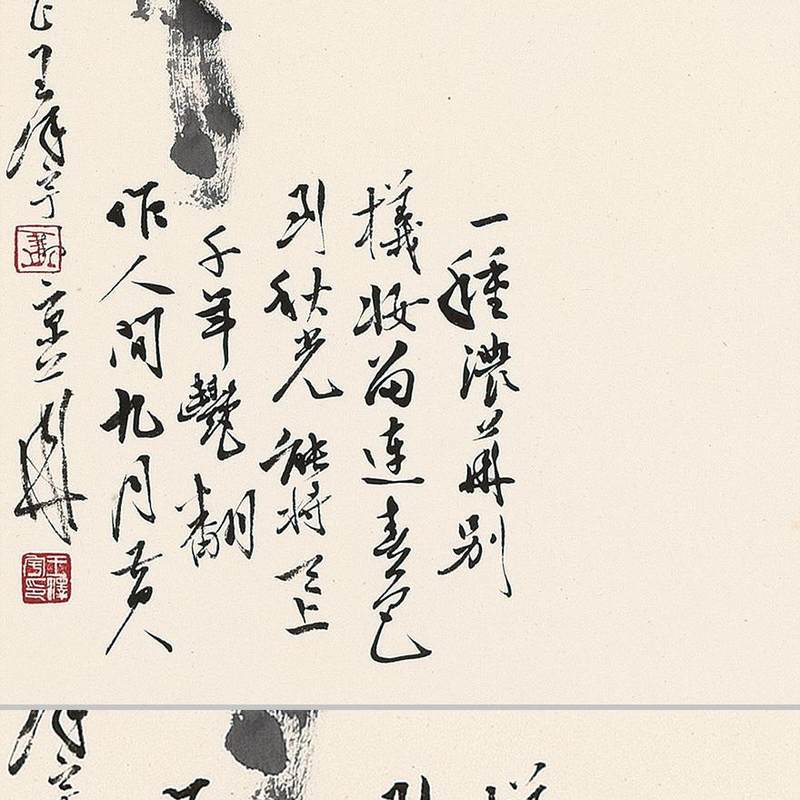 一種濃華別
樣妝留連春色
到秋光能將天上
千年艷翻
作人間九月黃
王澤宇
王澤宇印